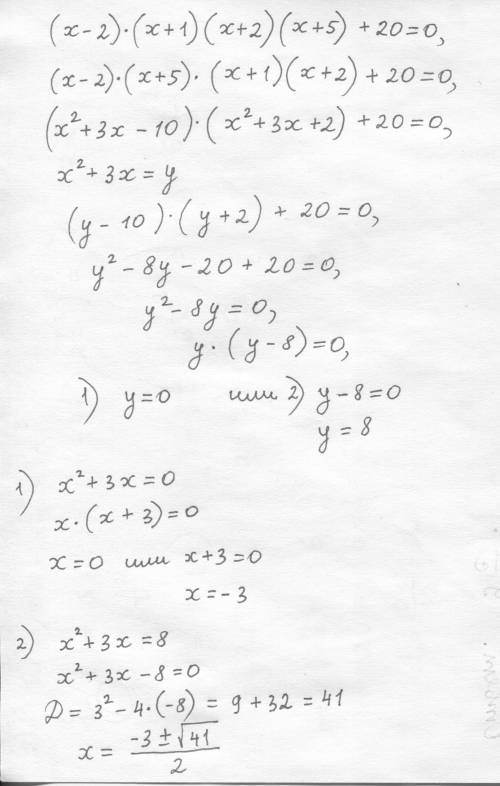 (x-2)·(x+1)(x+2)(x+5)+20=0,
(x-2)·(x+5)·(x+1)(x+2)+20=0,
(x²+3x-10)·(x²+3x+2)+20=0,
x²+3x=y
(y-10)·(y+2)+20=0,
y²-8y-20+20=0,
y²-8y=0,
y·(y-8)=0,
1) y=0 или 2) y-8=0
y=8
1) x²+3x=0
x·(x+3)=0
x=0 или x+3=0
x=-3
2) x²+3x=8
x²+3x-8=0
D=3²-4·(-8)=9+32=41
x=(-3±√41)/2